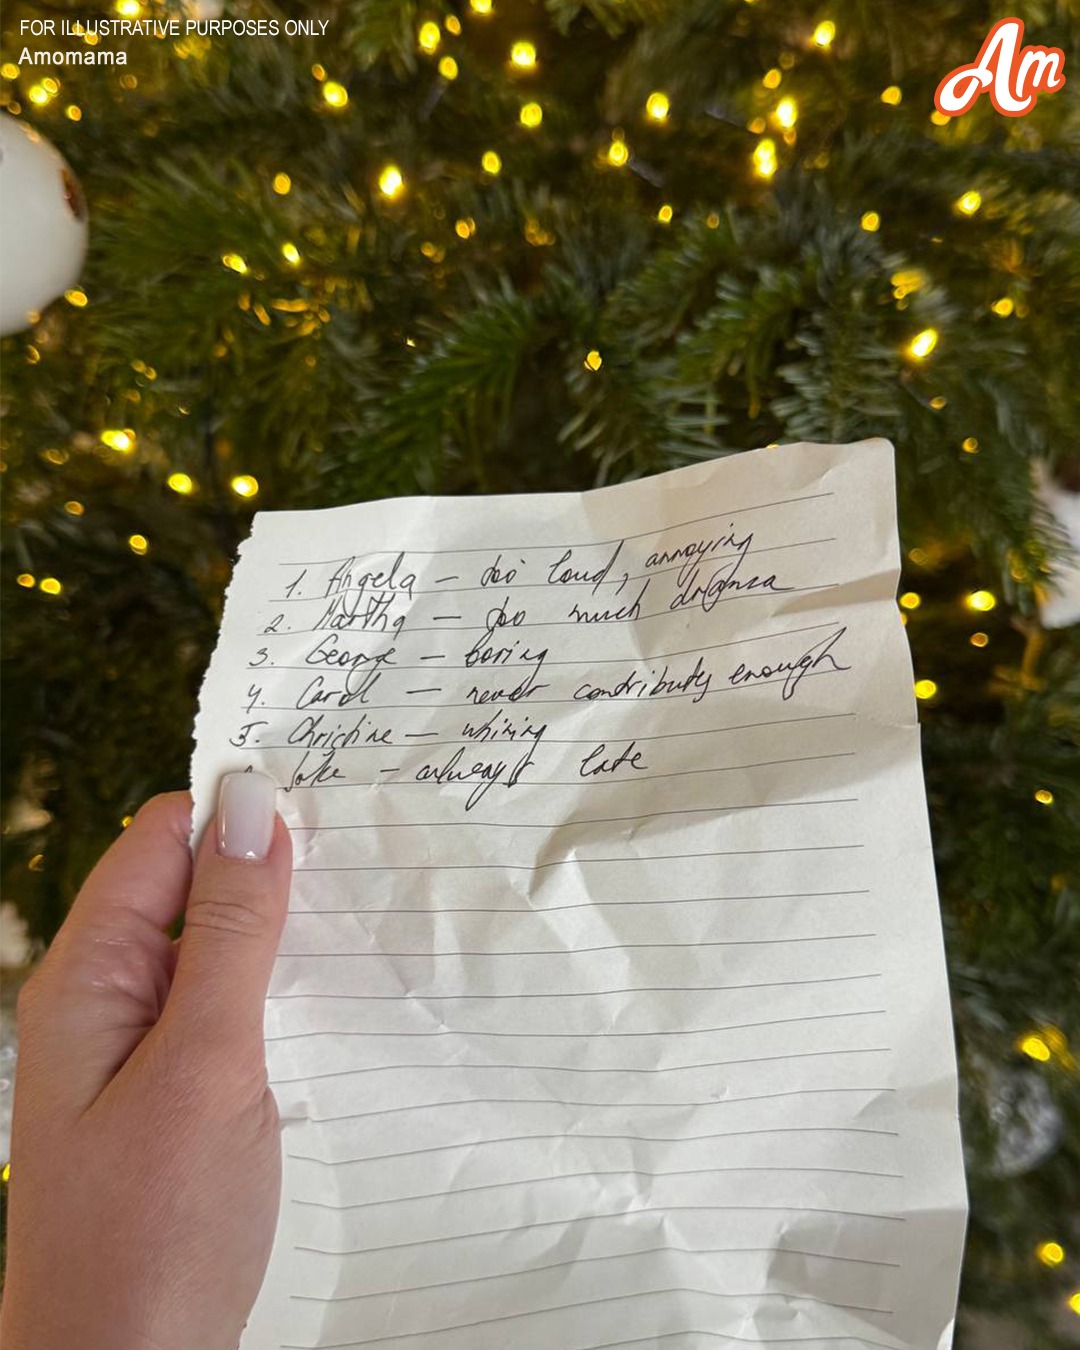 FOR ILLUSTRATIVE PURPOSES ONLY
Amomama
Am
1. Angela – too loud, annoying
2. Martha – too much drama
3. George – boring
4. Carol – never contributs enough
5. Christine – whining
Jake – always late